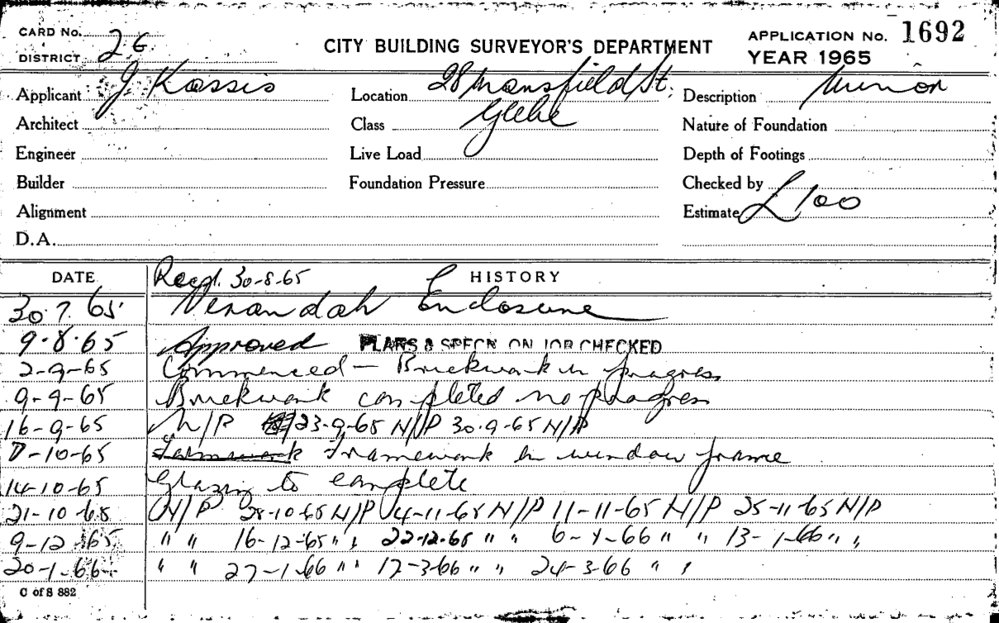 CARD No.
DISTRICT 26
CITY BUILDING SURVEYOR'S DEPARTMENT
APPLICATION No. 1692
YEAR 1965
Applicant J Kassis
Location 28 Mansfield St,
Glebe
Description Minor
Architect
Class
Nature of Foundation
Engineer
Live Load
Depth of Footings
Builder
Foundation Pressure
Checked by
Alignment
Estimate £100
D.A.
DATE
Recpt. 30-8-65
HISTORY
30.7.65 Verandah Enclosure
9.8.65 Approved PLANS & SPECN. ON JOB CHECKED
2-9-65 Commenced — Brickwork in progress
9-9-65 Brickwork completed no progress
16-9-65 N/P 23-9-65 N/P 30-9-65 N/P
7-10-65 Framework Framework in window frame
14-10-65 Glazing to complete
21-10-65 N/P 28-10-65 N/P 4-11-65 N/P 11-11-65 N/P 25-11-65 N/P
9-12-65 " " 16-12-65 " " 22-12-65 " " 6-1-66 " " 13-1-66 " "
20-1-66 " " 27-1-66 " " 17-3-66 " " 24-3-66 " "
C of S 882